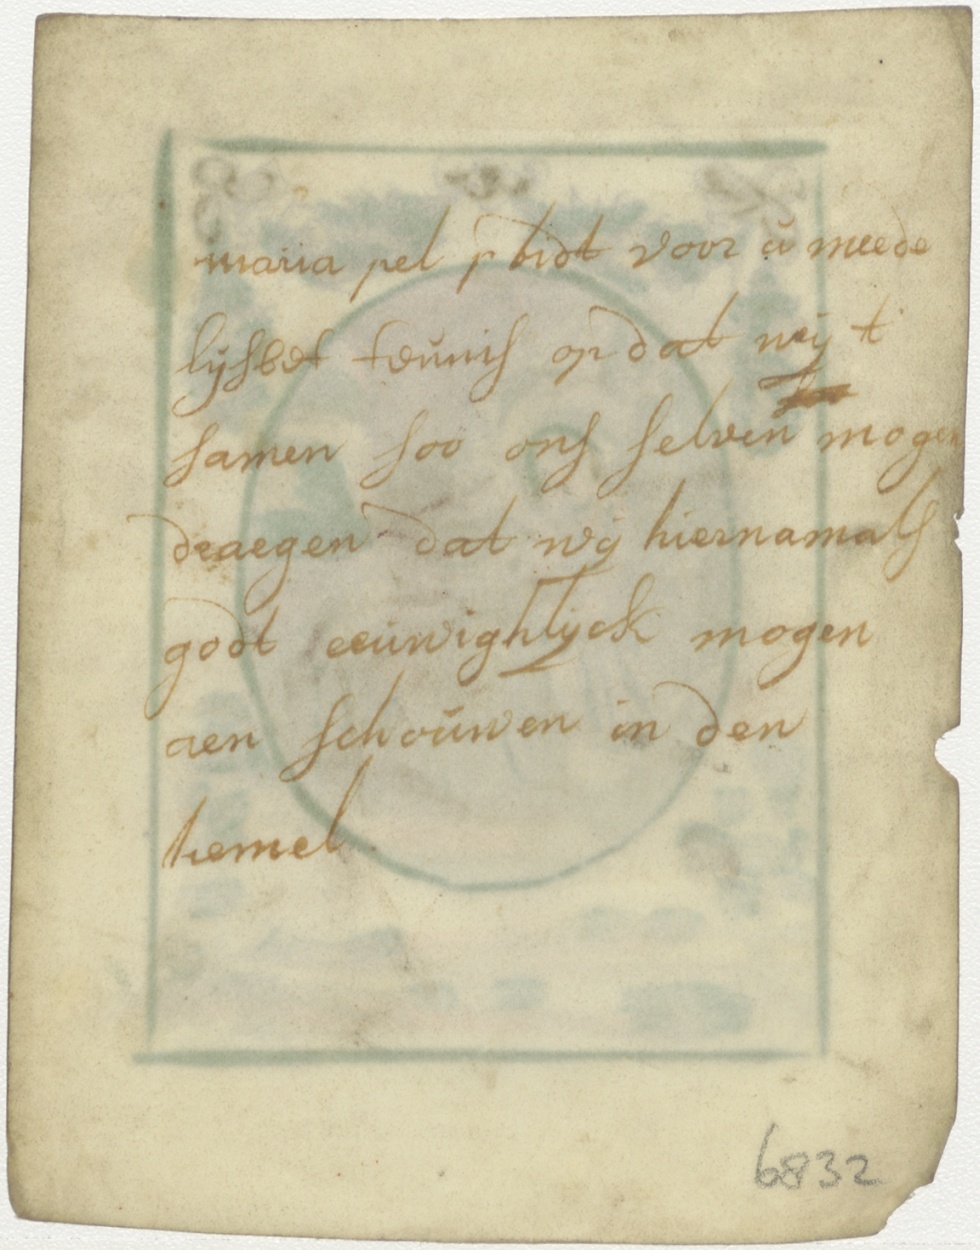 maria pel p bidt voor ú meede
lijsbet teunis op dat wij t'
samen soo ons selven mogen
draegen dat wij hiernamals
godt eeúwighlijck mogen
aen schoúwen in den
hemel
6832